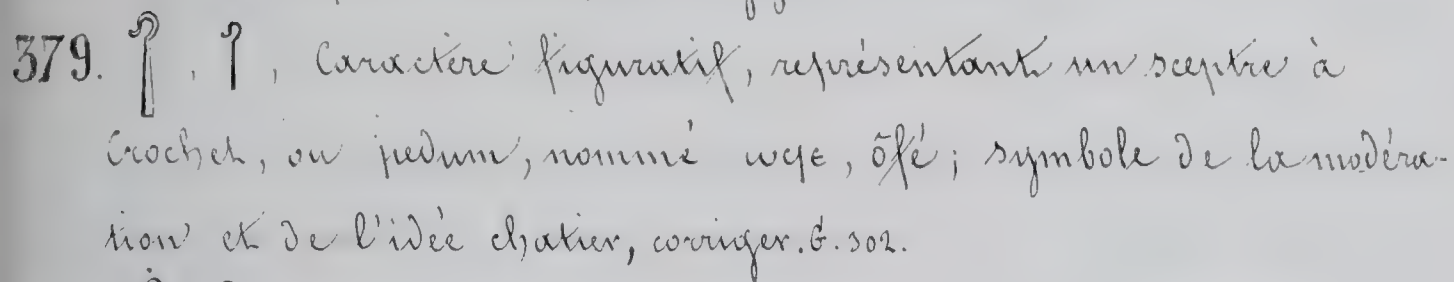 379. 𓋾, 𓋾, Caractère figuratif, représentant un sceptre à
crochet, ou pedum, nommé ⲱϥⲉ, ōfé; symbole de la modéra-
tion et de l'idée chatier, corriger. G. 302.